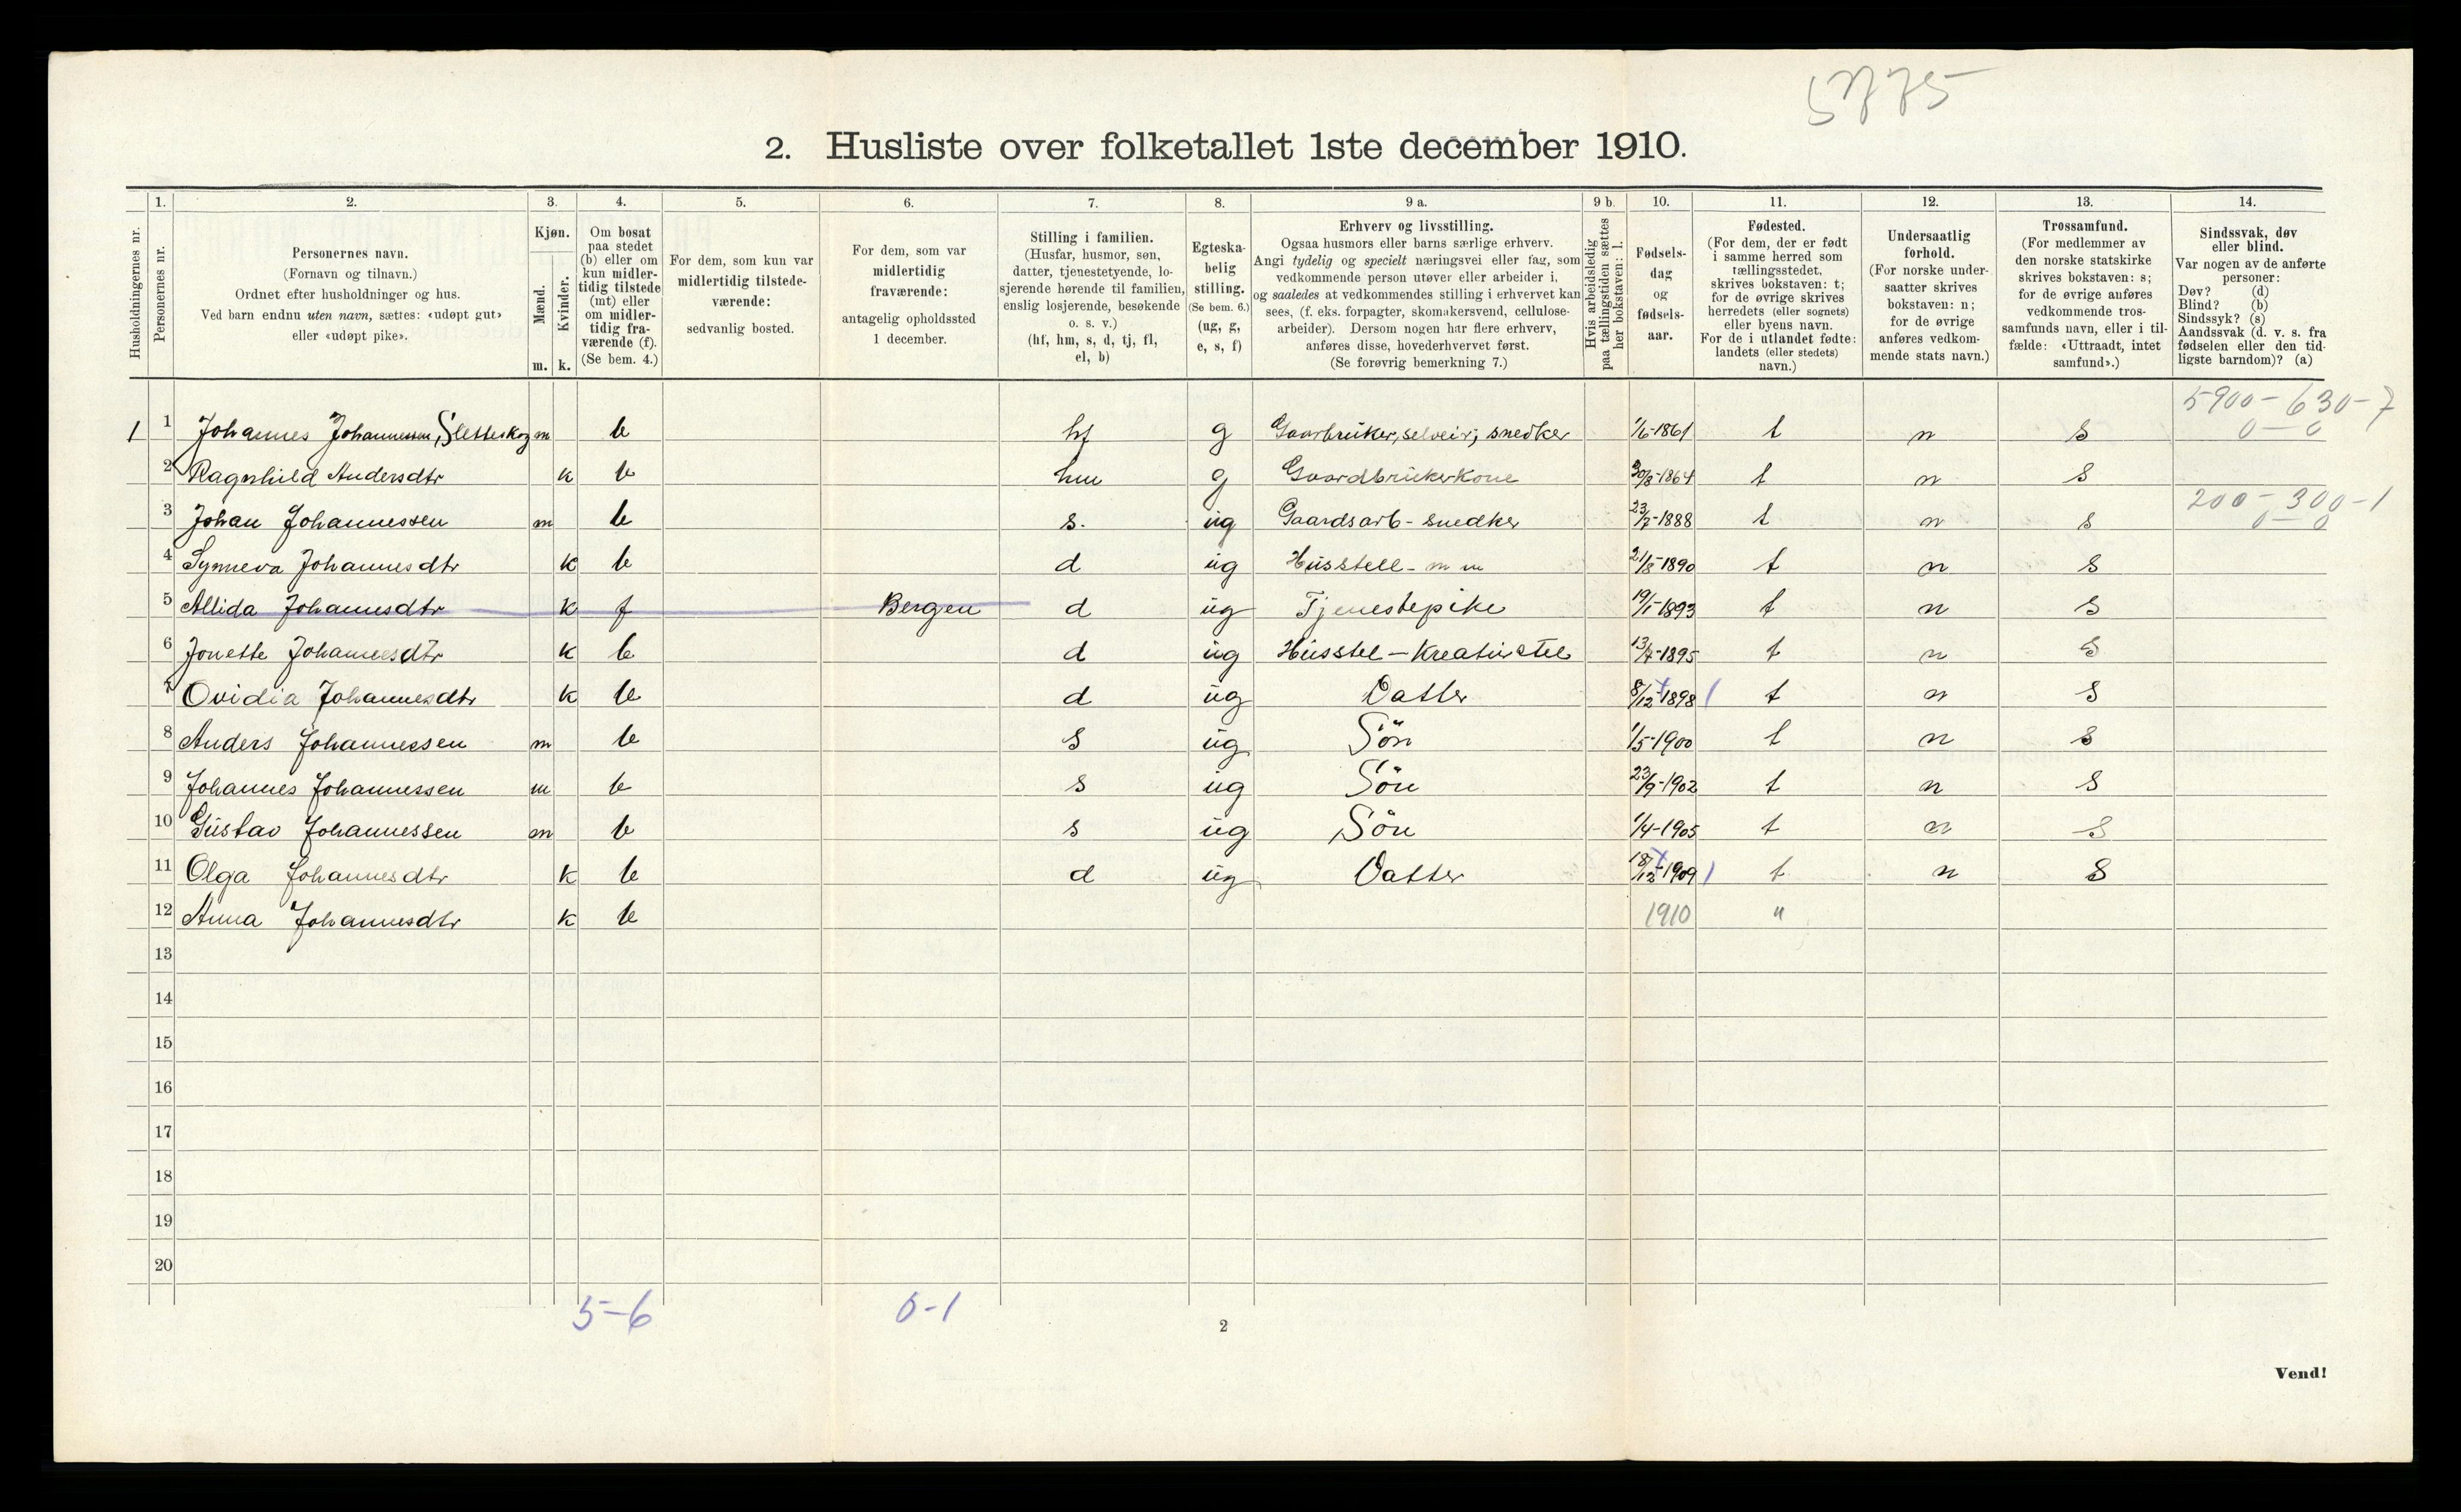 5775
2. Husliste over folketallet 1ste december 1910.
Husholdningernes nr.
1. Personernes nr.
2. Personernes navn.
(Fornavn og tilnavn.)
Ordnet efter husholdninger og hus.
Ved barn endnu uten navn, sættes: «udøpt gut»
eller «udøpt pike».
3. Kjøn.
Mænd. m.
Kvinder. k.
4. Om bosat
paa stedet
(b) eller om
kun midler-
tidig tilstede
(mt) eller
om midler-
tidig fra-
værende (f).
(Se bem. 4.)
5. For dem, som kun var
midlertidig tilstede-
værende:
sedvanlig bosted.
6. For dem, som var
midlertidig
fraværende:
antagelig opholdssted
1 december.
7. Stilling i familien.
(Husfar, husmor, søn,
datter, tjenestetyende, lo-
sjerende hørende til familien,
enslig losjerende, besøkende
o. s. v.)
(hf, hm, s, d, tj, fl,
el, b)
8. Egteska-
belig
stilling.
(Se bem. 6.)
(ug, g,
e, s, f)
9 a. Erhverv og livsstilling.
Ogsaa husmors eller barns særlige erhverv.
Angi tydelig og specielt næringsvei eller fag, som
vedkommende person utøver eller arbeider i,
og saaledes at vedkommendes stilling i erhvervet kan
sees, (f. eks. forpagter, skomakersvend, cellulose-
arbeider). Dersom nogen har flere erhverv,
anføres disse, hovederhvervet først.
(Se forøvrig bemerkning 7.)
9 b. Hvis arbeidsledig
paa tællingstiden sættes
her bokstaven: l.
10. Fødsels-
dag
og
fødsels-
aar.
11. Fødested.
(For dem, der er født
i samme herred som
tællingsstedet,
skrives bokstaven: t;
for de øvrige skrives
herredets (eller sognets)
eller byens navn.
For de i utlandet fødte:
landets (eller stedets)
navn.)
12. Undersaatlig
forhold.
(For norske under-
saatter skrives
bokstaven: n;
for de øvrige
anføres vedkom-
mende stats navn.)
13. Trossamfund.
(For medlemmer av
den norske statskirke
skrives bokstaven: s;
for de øvrige anføres
vedkommende tros-
samfunds navn, eller i til-
fælde: «Uttraadt, intet
samfund».)
14. Sindssvak, døv
eller blind.
Var nogen av de anførte
personer:
Døv? (d)
Blind? (b)
Sindssyk? (s)
Aandssvak (d. v. s. fra
fødselen eller den tid-
ligste barndom)? (a)
5900 - 630 - 7
0 - 0
1 1 Johannes Johannessen, Sletteskog m b hf g Gaarbruker, selveir; snedker 1/6-1861 t n s
2 Ragnhild Andersdtr k b hm g Gaardbrukerkone 30/8-1864 t n s
200 - 300 - 1
0 - 0
3 Johan Johannessen m b s. ug Gaardsarb - snedker 23/7-1888 t n s
4 Synneva Johannesdtr k b d ug Husstell - m m 21/8-1890 t n s
5 Allida Johannesdtr k f Bergen d ug Tjenestepike 19/1-1893 t n s
6 Jonette Johannesdtr k b d ug Husstel - Kreaturstel 13/4-1895 t n s
7 Ovidia Johannesdtr k b d ug Datter 8/12-1898 t n s
8 Anders Johannessen m b s ug Sön 1/5-1900 t n s
9 Johannes Johannessen m b s ug Sön 23/9-1902 t n s
10 Gustav Johannessen m b s ug Sön 1/4-1905 t n s
11 Olga Johannesdtr k b d ug Datter 18/12-1909 t n s
12 Anna Johannesdtr k b 1910 "
13
14
15
16
17
18
19
20
5-6 0-1
2
Vend!